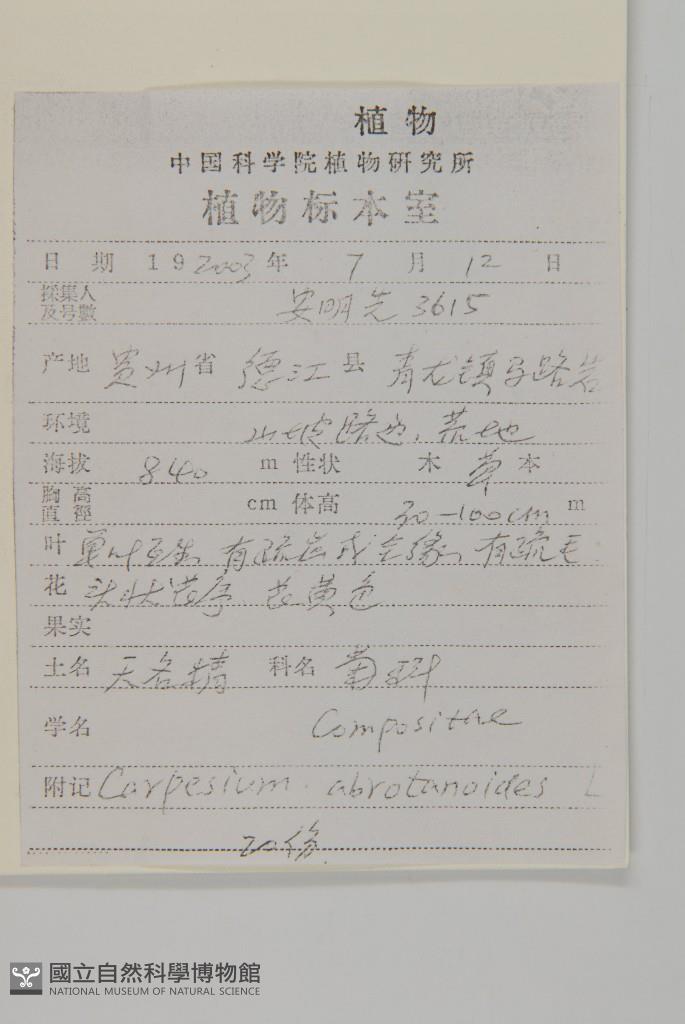 植物
中国科学院植物研究所
植物标本室
日期 19 2003年 7月 12日
採集人及号數 安明先 3615
产地 贵州省 德江县 青龙镇马路岩
环境 山坡路边、荒地
海拔 840 m 性状 木 草 本
胸高直徑 cm 体高 30-100cm m
叶 单叶互生、有疏齿或全缘、有疏毛
花 头状花序 花黄色
果实
土名 天名精 科名 菊科
学名 Compositae
附记 Carpesium abrotanoides L
20份
國立自然科學博物館
NATIONAL MUSEUM OF NATURAL SCIENCE